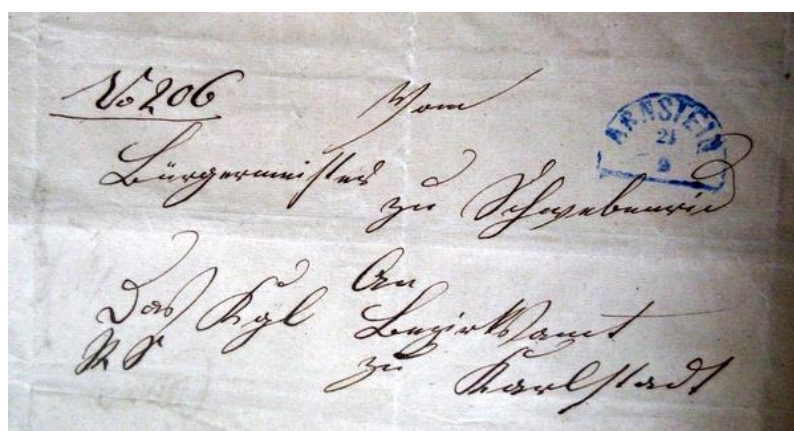 No 206
Vom
ARNSTEIN
24
9
Bürgermeister
zu Schwebenried
An
Das Kgl Bezirksamt
R S
zu Karlstadt